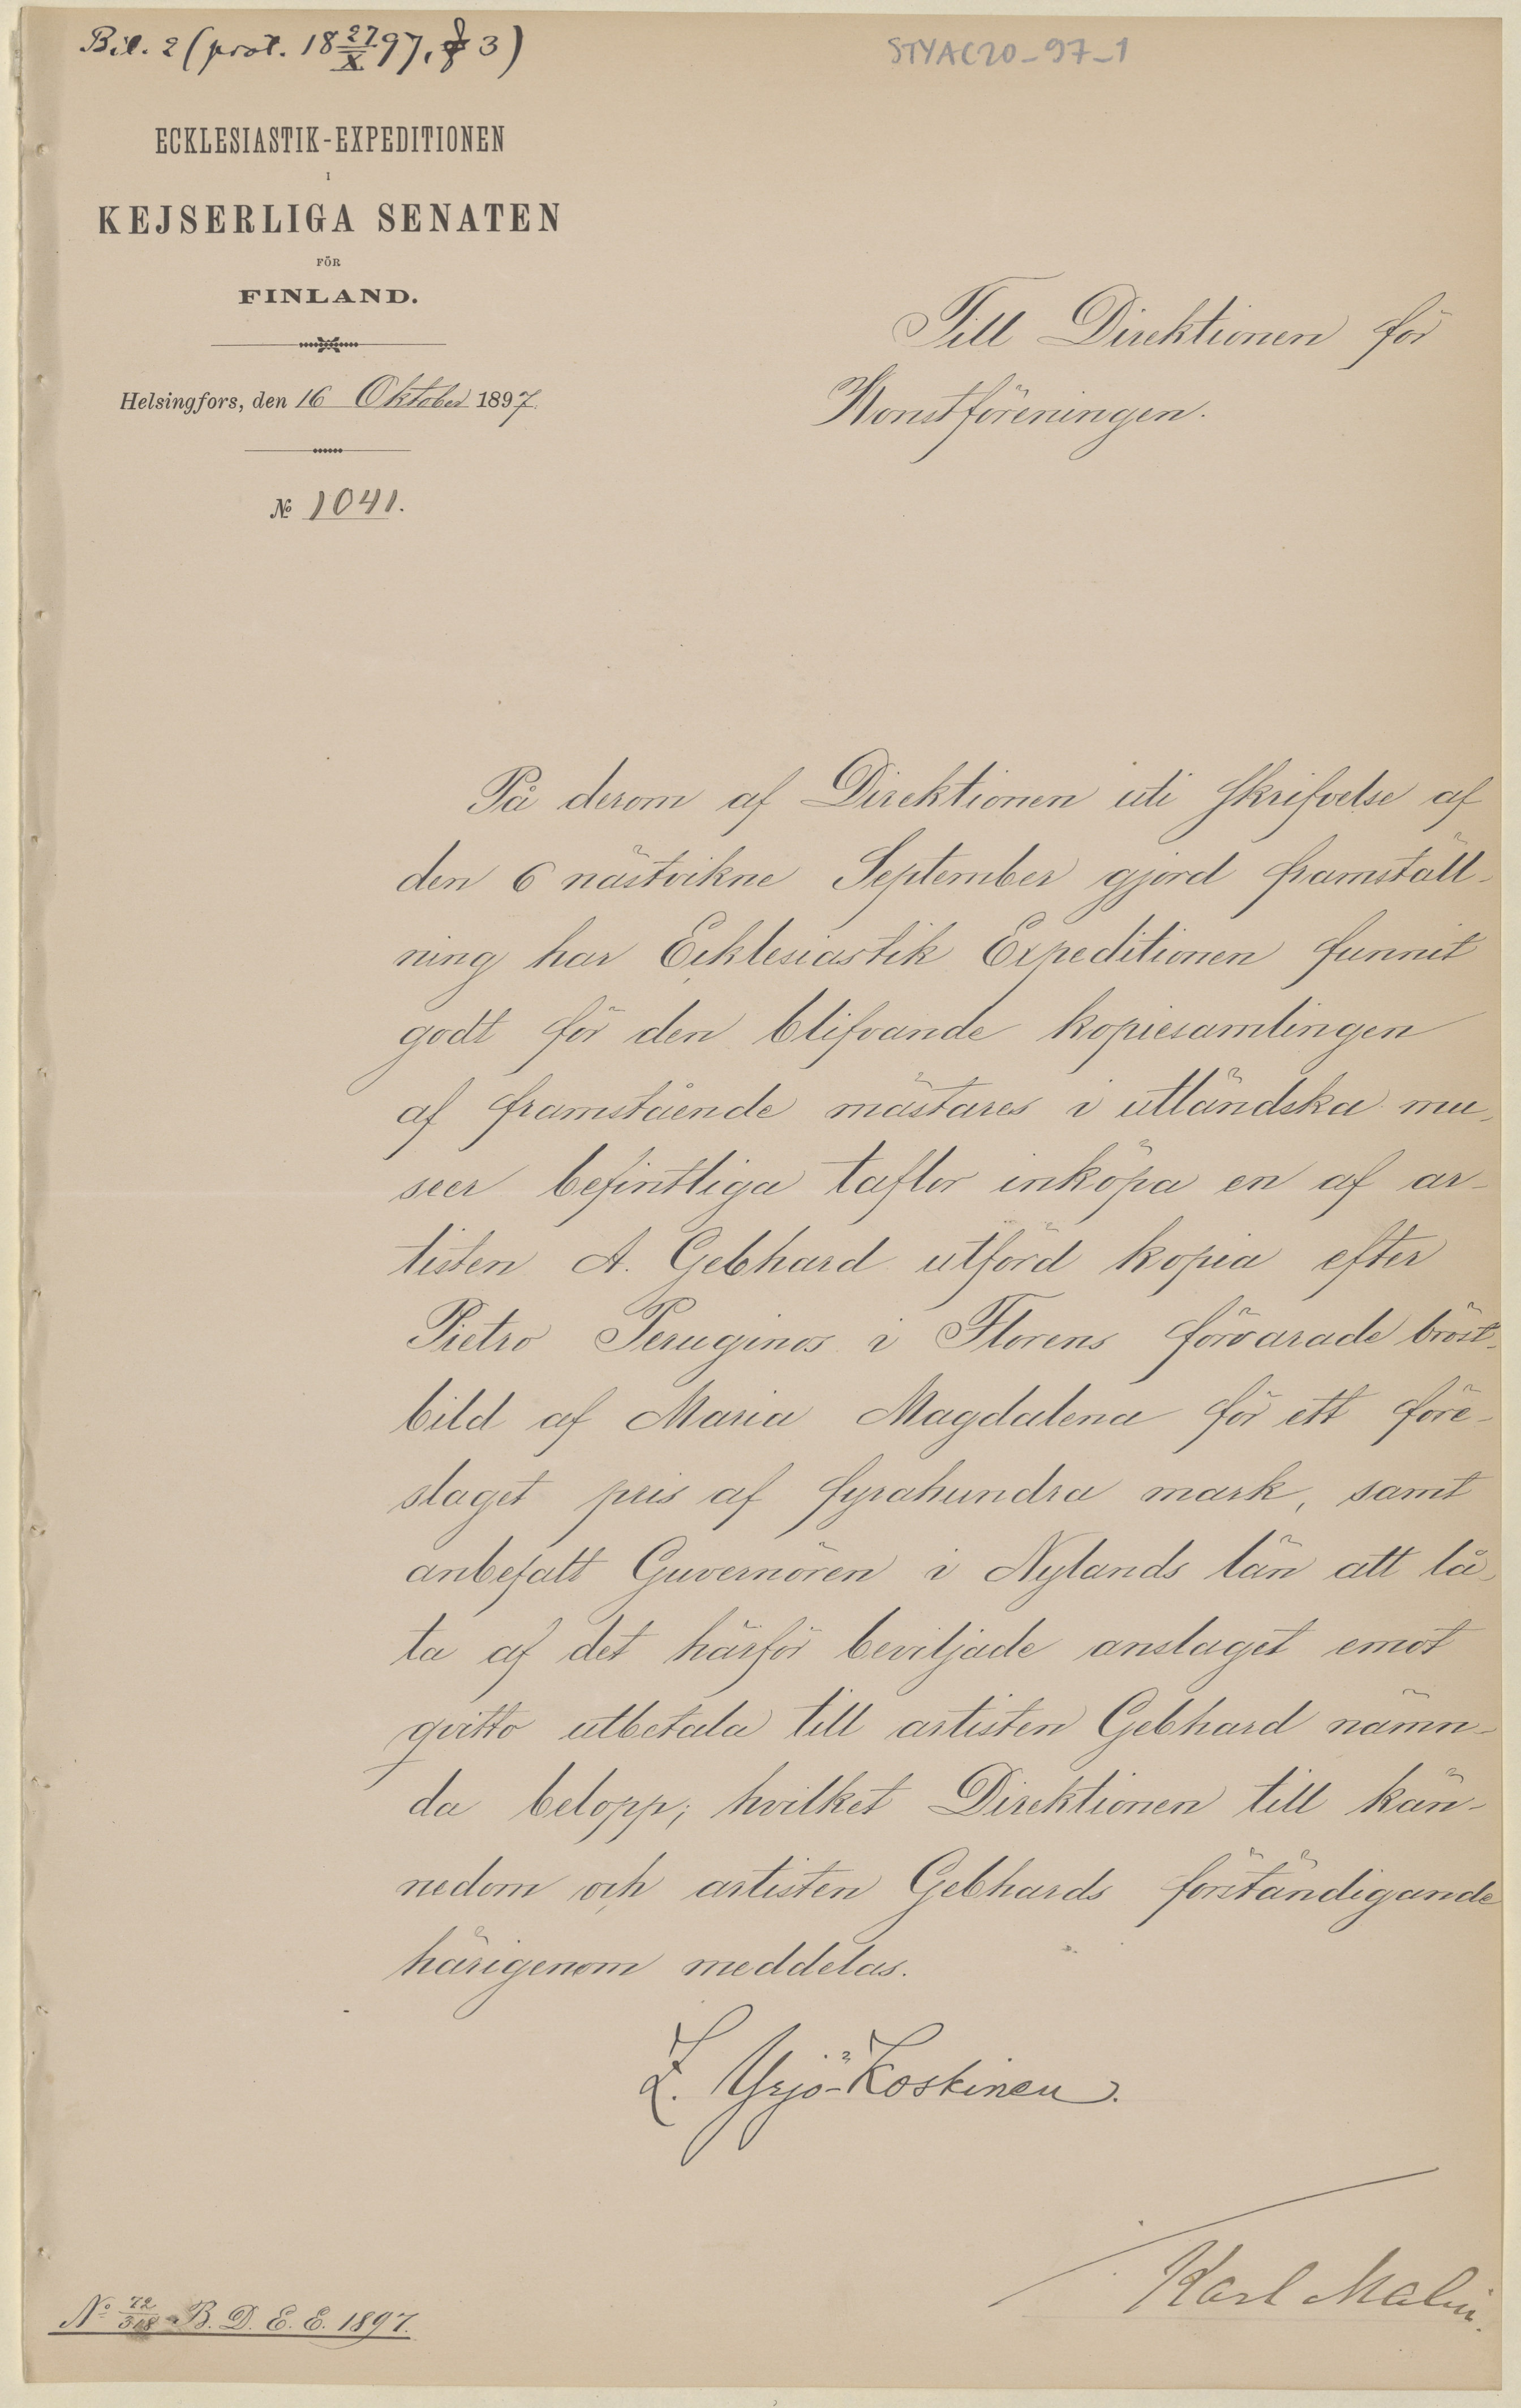 Bil. 2 (prot. 18 27/X 97, § 3)
STYAC20_97_1
ECKLESIASTIK-EXPEDITIONEN
I
KEJSERLIGA SENATEN
FÖR
FINLAND.
Helsingfors, den 16 Oktober 1897.
№ 1041.
Till Direktionen för
Konstföreningen.
På derom af Direktionen uti skrifvelse af
den 6 nästvikne September gjord framställ-
ning har Ecklesiastik Expeditionen funnit
godt för den blifvande kopiesamlingen
af framstående mästares i utländska mu-
seer befintliga taflor inköpa en af ar-
tisten A. Gebhard utförd kopia efter
Pietro Peruginos i Florens förvarade bröst-
bild af Maria Magdalena för ett före-
slaget pris af fyrahundra mark, samt
anbefalt Guvernören i Nylands län att lå-
ta af det härför beviljade anslaget emot
qvitto utbetala till artisten Gebhard nämn-
da belopp; hvilket Direktionen till kän-
nedom och artisten Gebhards förständigande
härigenom meddelas.
Z. Yrjö-Koskinen.
Karl Malin.
No 72/308 B. D. E. E. 1897.